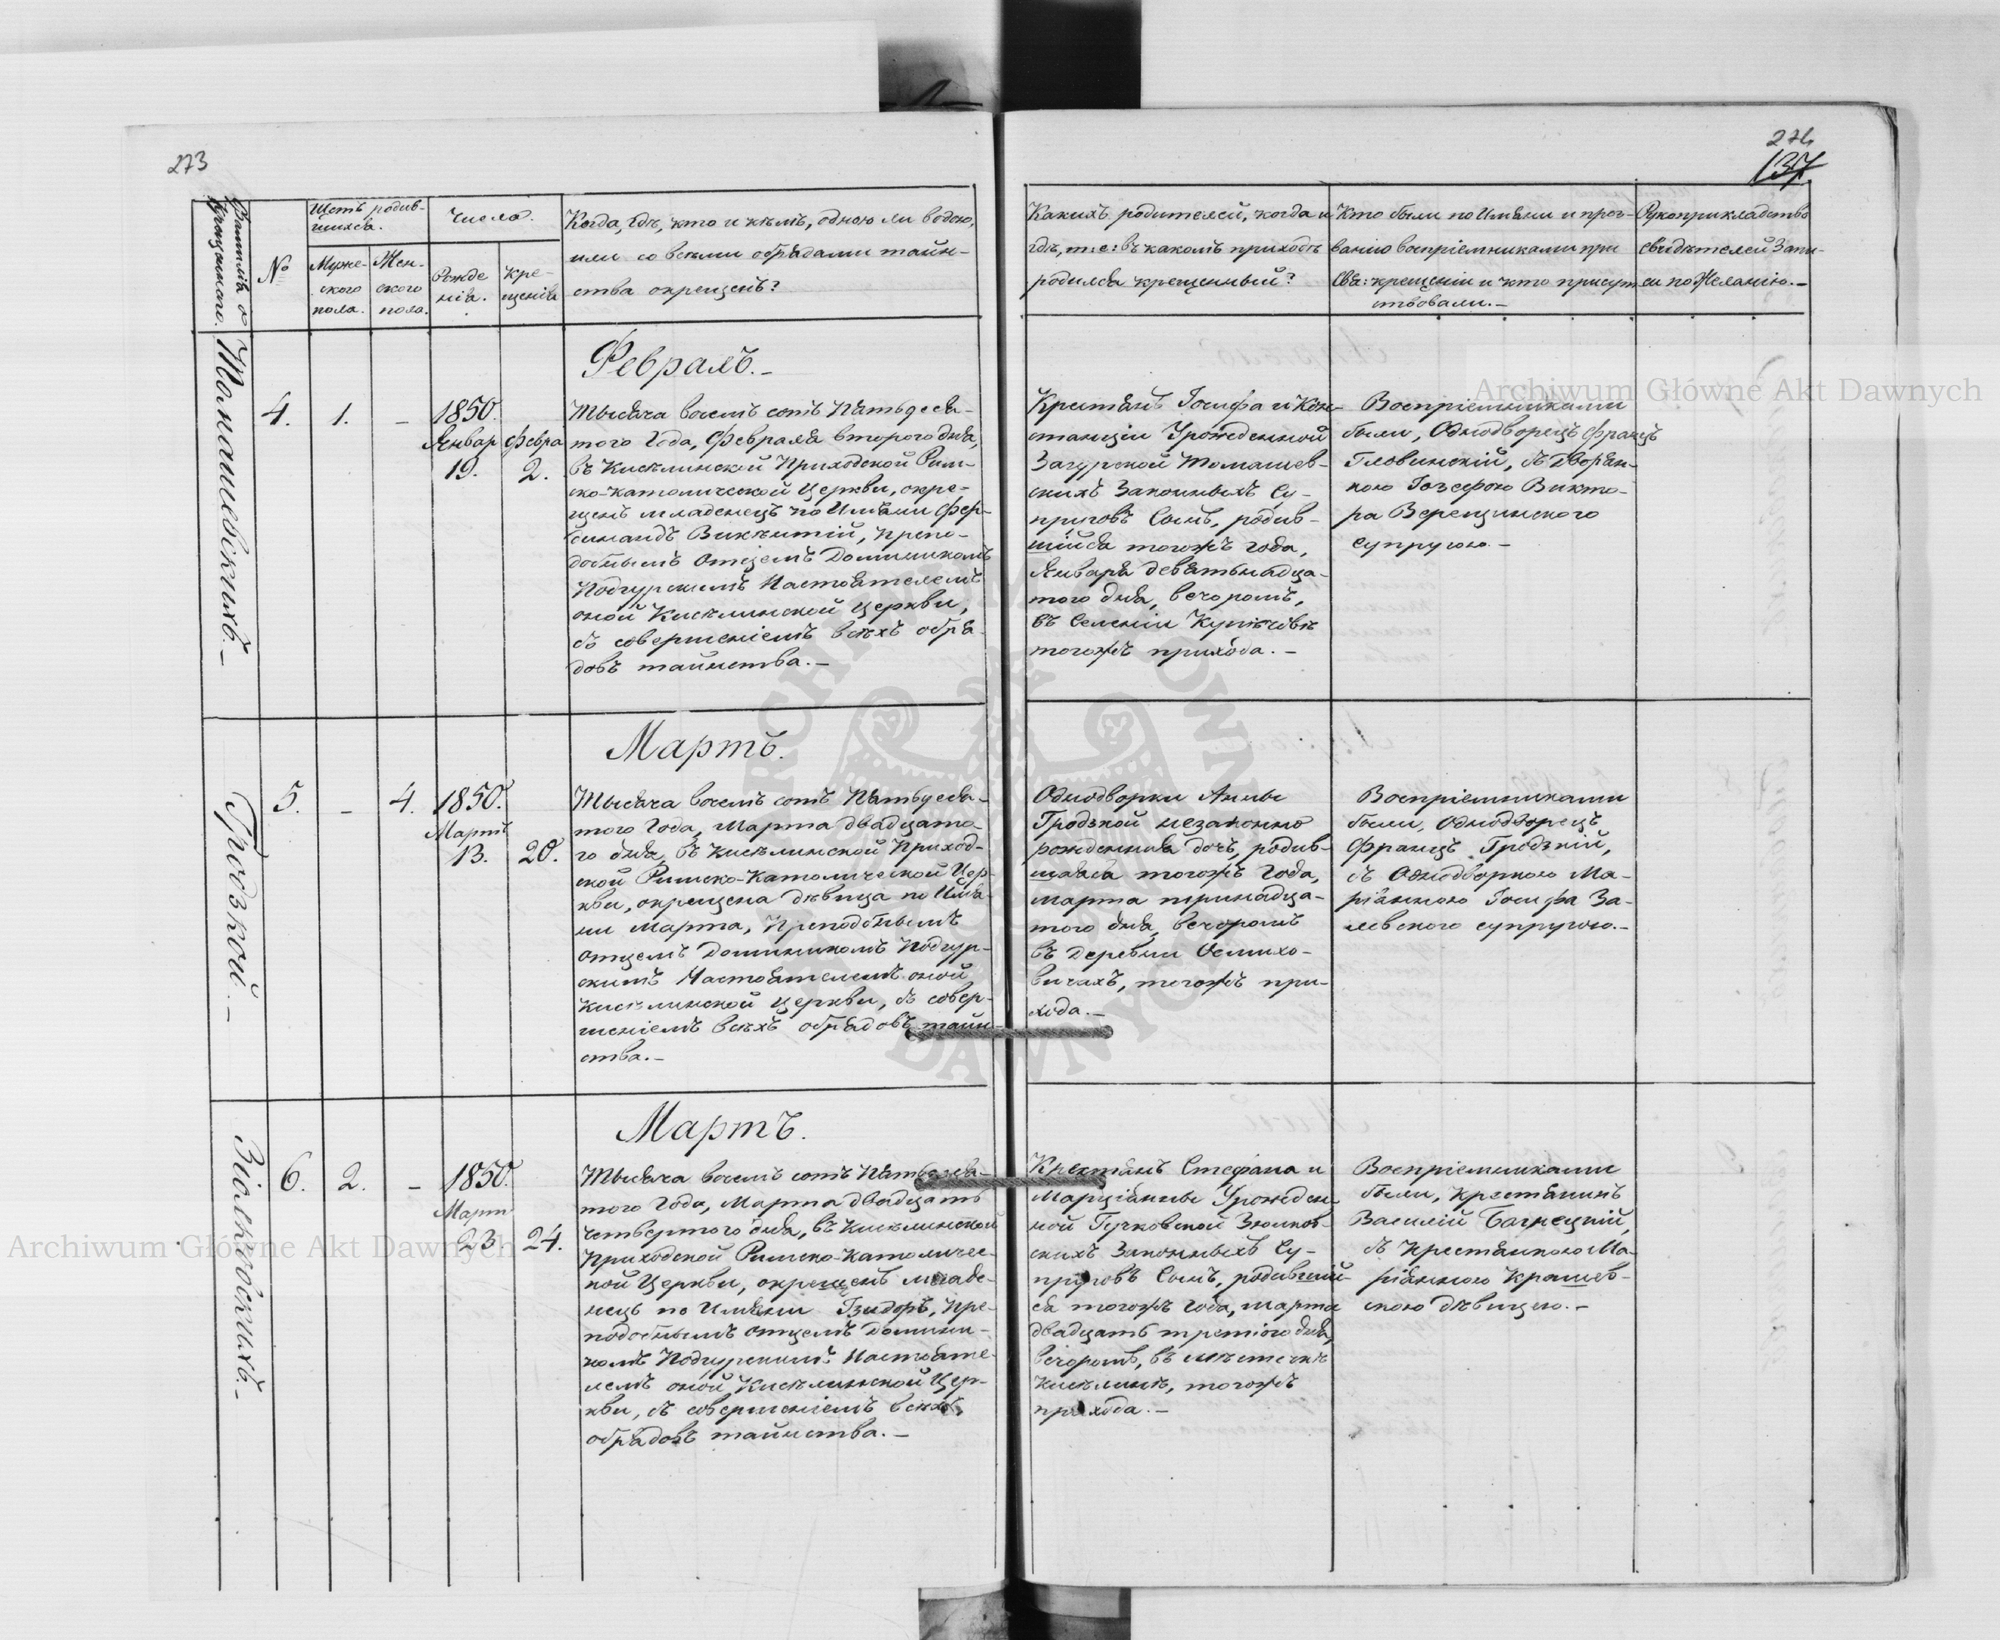 273
274
137
Фамилія о
Крещеннаго.
№
Щетъ родив-
шихся.
Муже-
ского
пола.
Жен-
ского
пола.
Числа.
Рожде
нія.
Кре-
щенія
Когда, гдѣ, кто и кѣмъ, одною ли водою,
или со всѣми обрядами таин-
ства окрещенъ?
Какихъ родителей, когда и
гдѣ, т: е: въ какомъ приходѣ
родился крещенный?
Кто были по Имѣни и проз-
ванію воспріемниками при
Свя: крещеніи и кто присут
ствовали.—
Рукоприкладство
свидѣтелей Запи-
си по Желанію.—
Томашевскихъ.—
4.
1.
—
1850.
Январ
19.
Февра
2.
Февраль.—
Тысяча восемъ сотъ Пятьдеся-
того Года, Февраля второго дня,
въ Кисѣлинской Приходской Рим-
ско-католической Церкви, окре-
щенъ младенецъ по Имѣни Фер-
динандъ Викѣнтій, Препо-
добнымъ Отцемъ Доминикомъ
Подгурскимъ Настоятелемъ
оной Кисѣлинской Церкви,
съ совершеніемъ всѣхъ обря-
довъ таинства.—
Крестянъ Іосифа и Кон-
станціи Урожденной
Загурской Томашев-
скихъ Законныхъ Су-
пруговъ Сынъ, родив-
шійся тогожъ года,
Января девятьнадца-
того дня, вечоромъ,
въ Селеніи Купѣчовѣ
тогожъ прихода.—
Воспріемниками
были, Однодворецъ Францъ
Гловинскій, съ Дворян-
кою Іозефою Викто-
ра Верещинского
супругою.—
Гродзкой.—
5.
—
4.
1850.
Мартъ
13.
20.
Мартъ.
Тысяча восемъ сотъ Пятьдеся-
того Года, Марта двадцато-
го дня, въ Кисѣлинской Приход-
ской Римско-Католической Цер-
кви, окрещена дѣвица по Имѣ-
ни Марта, Преподобнымъ
Отцемъ Доминикомъ Подгур-
скимъ Настоятелемъ оной
Кисѣлинской Церкви, съ совер-
шеніемъ всѣхъ обрядовъ таин-
ства.—
Однодворки Анны
Гродзкой незаконно
рожденная дочъ, родив-
шаяся тогожъ Года,
Марта тринадца-
того дня, вечоромъ
въ Деревни Осмихо-
вичахъ, тогожъ при-
хода.—
Воспріемниками
были, Однодворецъ
Францъ Гродзкій,
съ Однодворкою Ма-
ріянною Іосифа За-
левского супругою.—
Зіолковскихъ.—
6.
2.
—
1850.
Март
23
24.
Мартъ.
Тысяча восемъ сотъ Пятьдеся-
того Года, Марта двадцать
четвертого дня, въ Кисѣлинской
Приходской Римско-Католичес-
кой Церкви, окрещенъ младе-
нецъ по Имѣни Ізидоръ, Пре-
подобнымъ Отцемъ Домини-
комъ Подгурскимъ Настояте-
лемъ оной Кисѣлинской Цер-
кви, съ совершеніемъ всѣхъ
обрядовъ таинства.—
Крестянъ Стефана и
Марціанны Урожден-
ной Гучковской Зюлков-
скихъ Законныхъ Су-
пруговъ Сынъ, родившій-
ся тогожъ года, марта
двадцать третіого дня,
вечоромъ, въ мѣстечкѣ
Кисѣлинѣ, тогожъ
прихода.—
Воспріемниками
были, Крестянинъ
Василій Багнецкій,
съ Крестянкою Ма-
ріянною Крашев-
скою дѣвицею.—
Archiwum Główne Akt Dawnych
Archiwum Główne Akt Dawnych